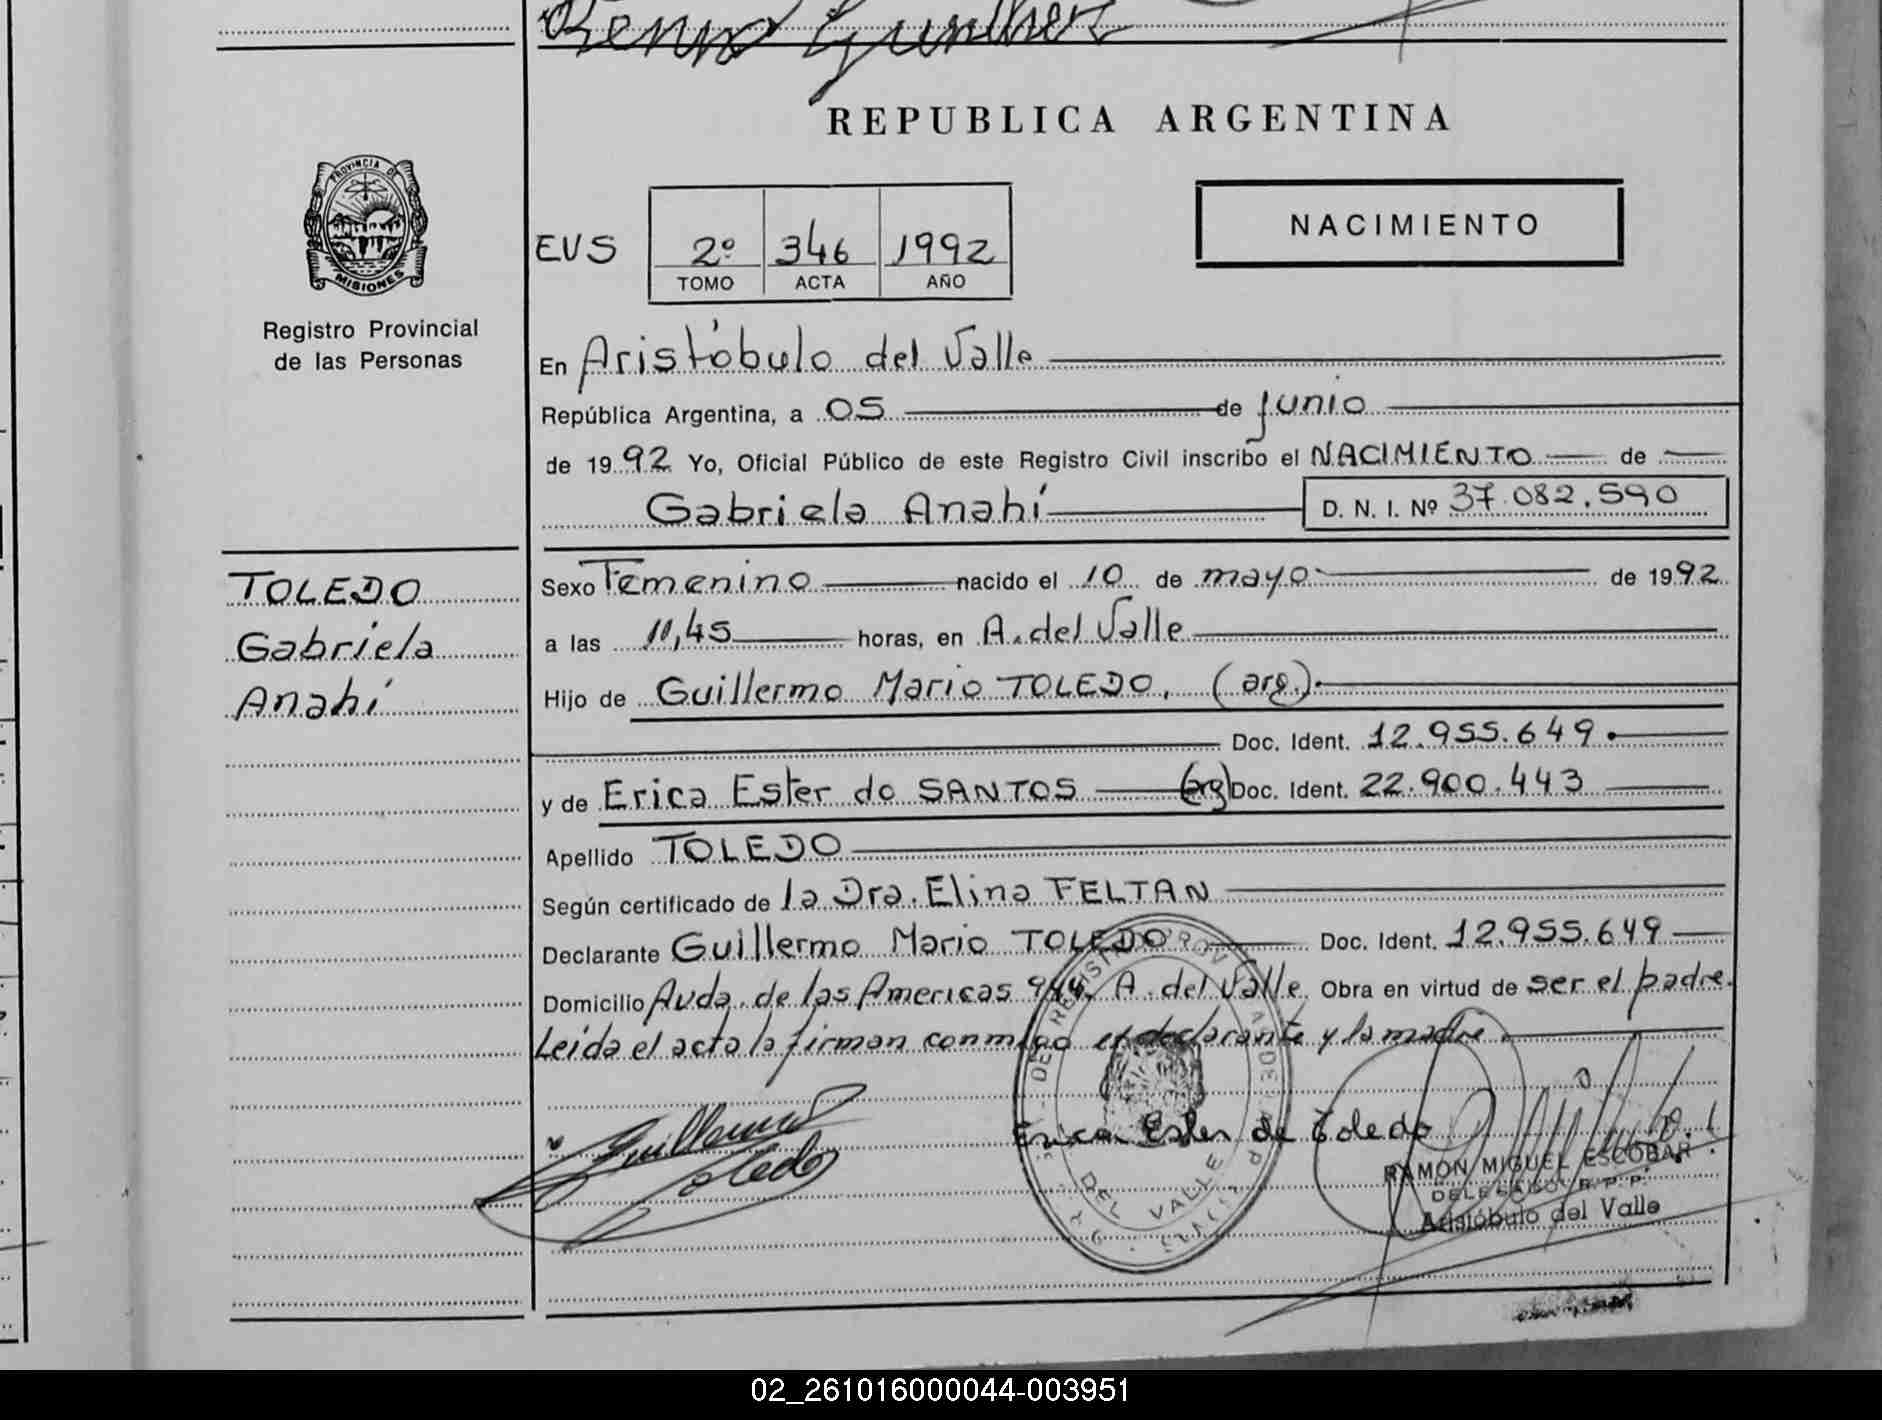 Benno Gunther
REPUBLICA ARGENTINA
PROVINCIA DE
MISIONES
Registro Provincial
de las Personas
NACIMIENTO
EVS 2º 346 1992
TOMO ACTA AÑO
En Aristóbulo del Valle
República Argentina, a 05 de junio
de 1992 Yo, Oficial Público de este Registro Civil inscribo el NACIMIENTO de
Gabriela Anahí D. N. I. Nº 37.082.590
TOLEDO
Gabriela
Anahí
Sexo Femenino nacido el 10 de mayo de 1992
a las 11,45 horas, en A. del Valle
Hijo de Guillermo Mario TOLEDO, (arg.)
Doc. Ident. 12.955.649
y de Erica Ester do SANTOS (arg) Doc. Ident. 22.900.443
Apellido TOLEDO
Según certificado de la Dra. Elina FELTAN
Declarante Guillermo Mario TOLEDO Doc. Ident. 12.955.649
Domicilio Avda. de las Americas 944, A. del Valle Obra en virtud de ser el padre.
Leida el acta la firman conmigo el declarante y la madre
Guillermo
Toledo
Erica Ester de Toledo
RAMON MIGUEL ESCOBAR
DELEGADO R.P.P.
Aristóbulo del Valle
DEL VALLE
02_261016000044-003951